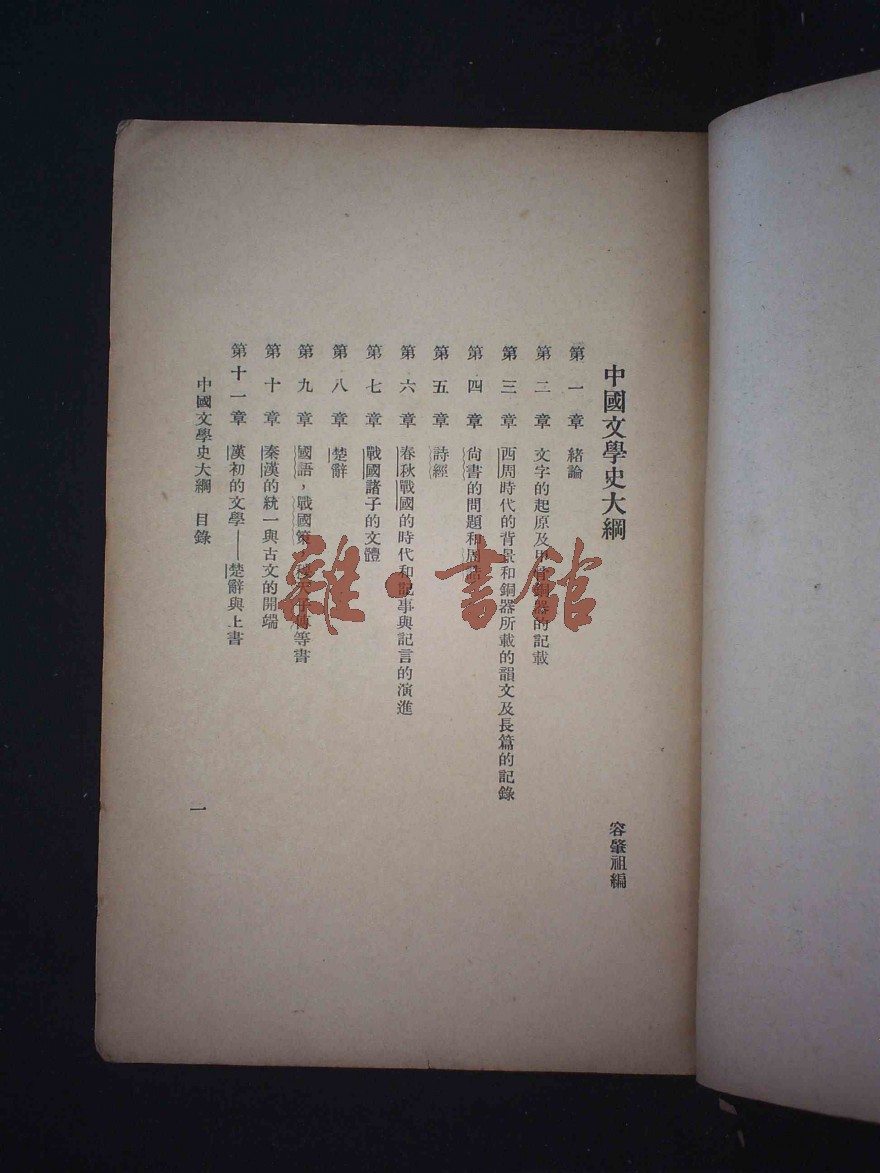 中國文學史大綱
容肇祖編
第一章 緒論
第二章 文字的起原及甲骨銅器的記載
第三章 西周時代的背景和銅器所載的韻文及長篇的記錄
第四章 尚書的問題和周誥
第五章 詩經
第六章 春秋戰國的時代和記事與記言的演進
第七章 戰國諸子的文體
第八章 楚辭
第九章 國語，戰國策，穆天子傳等書
第十章 秦漢的統一與古文的開端
第十一章 漢初的文學——楚辭與上書
中國文學史大綱 目錄
一
雜·書館